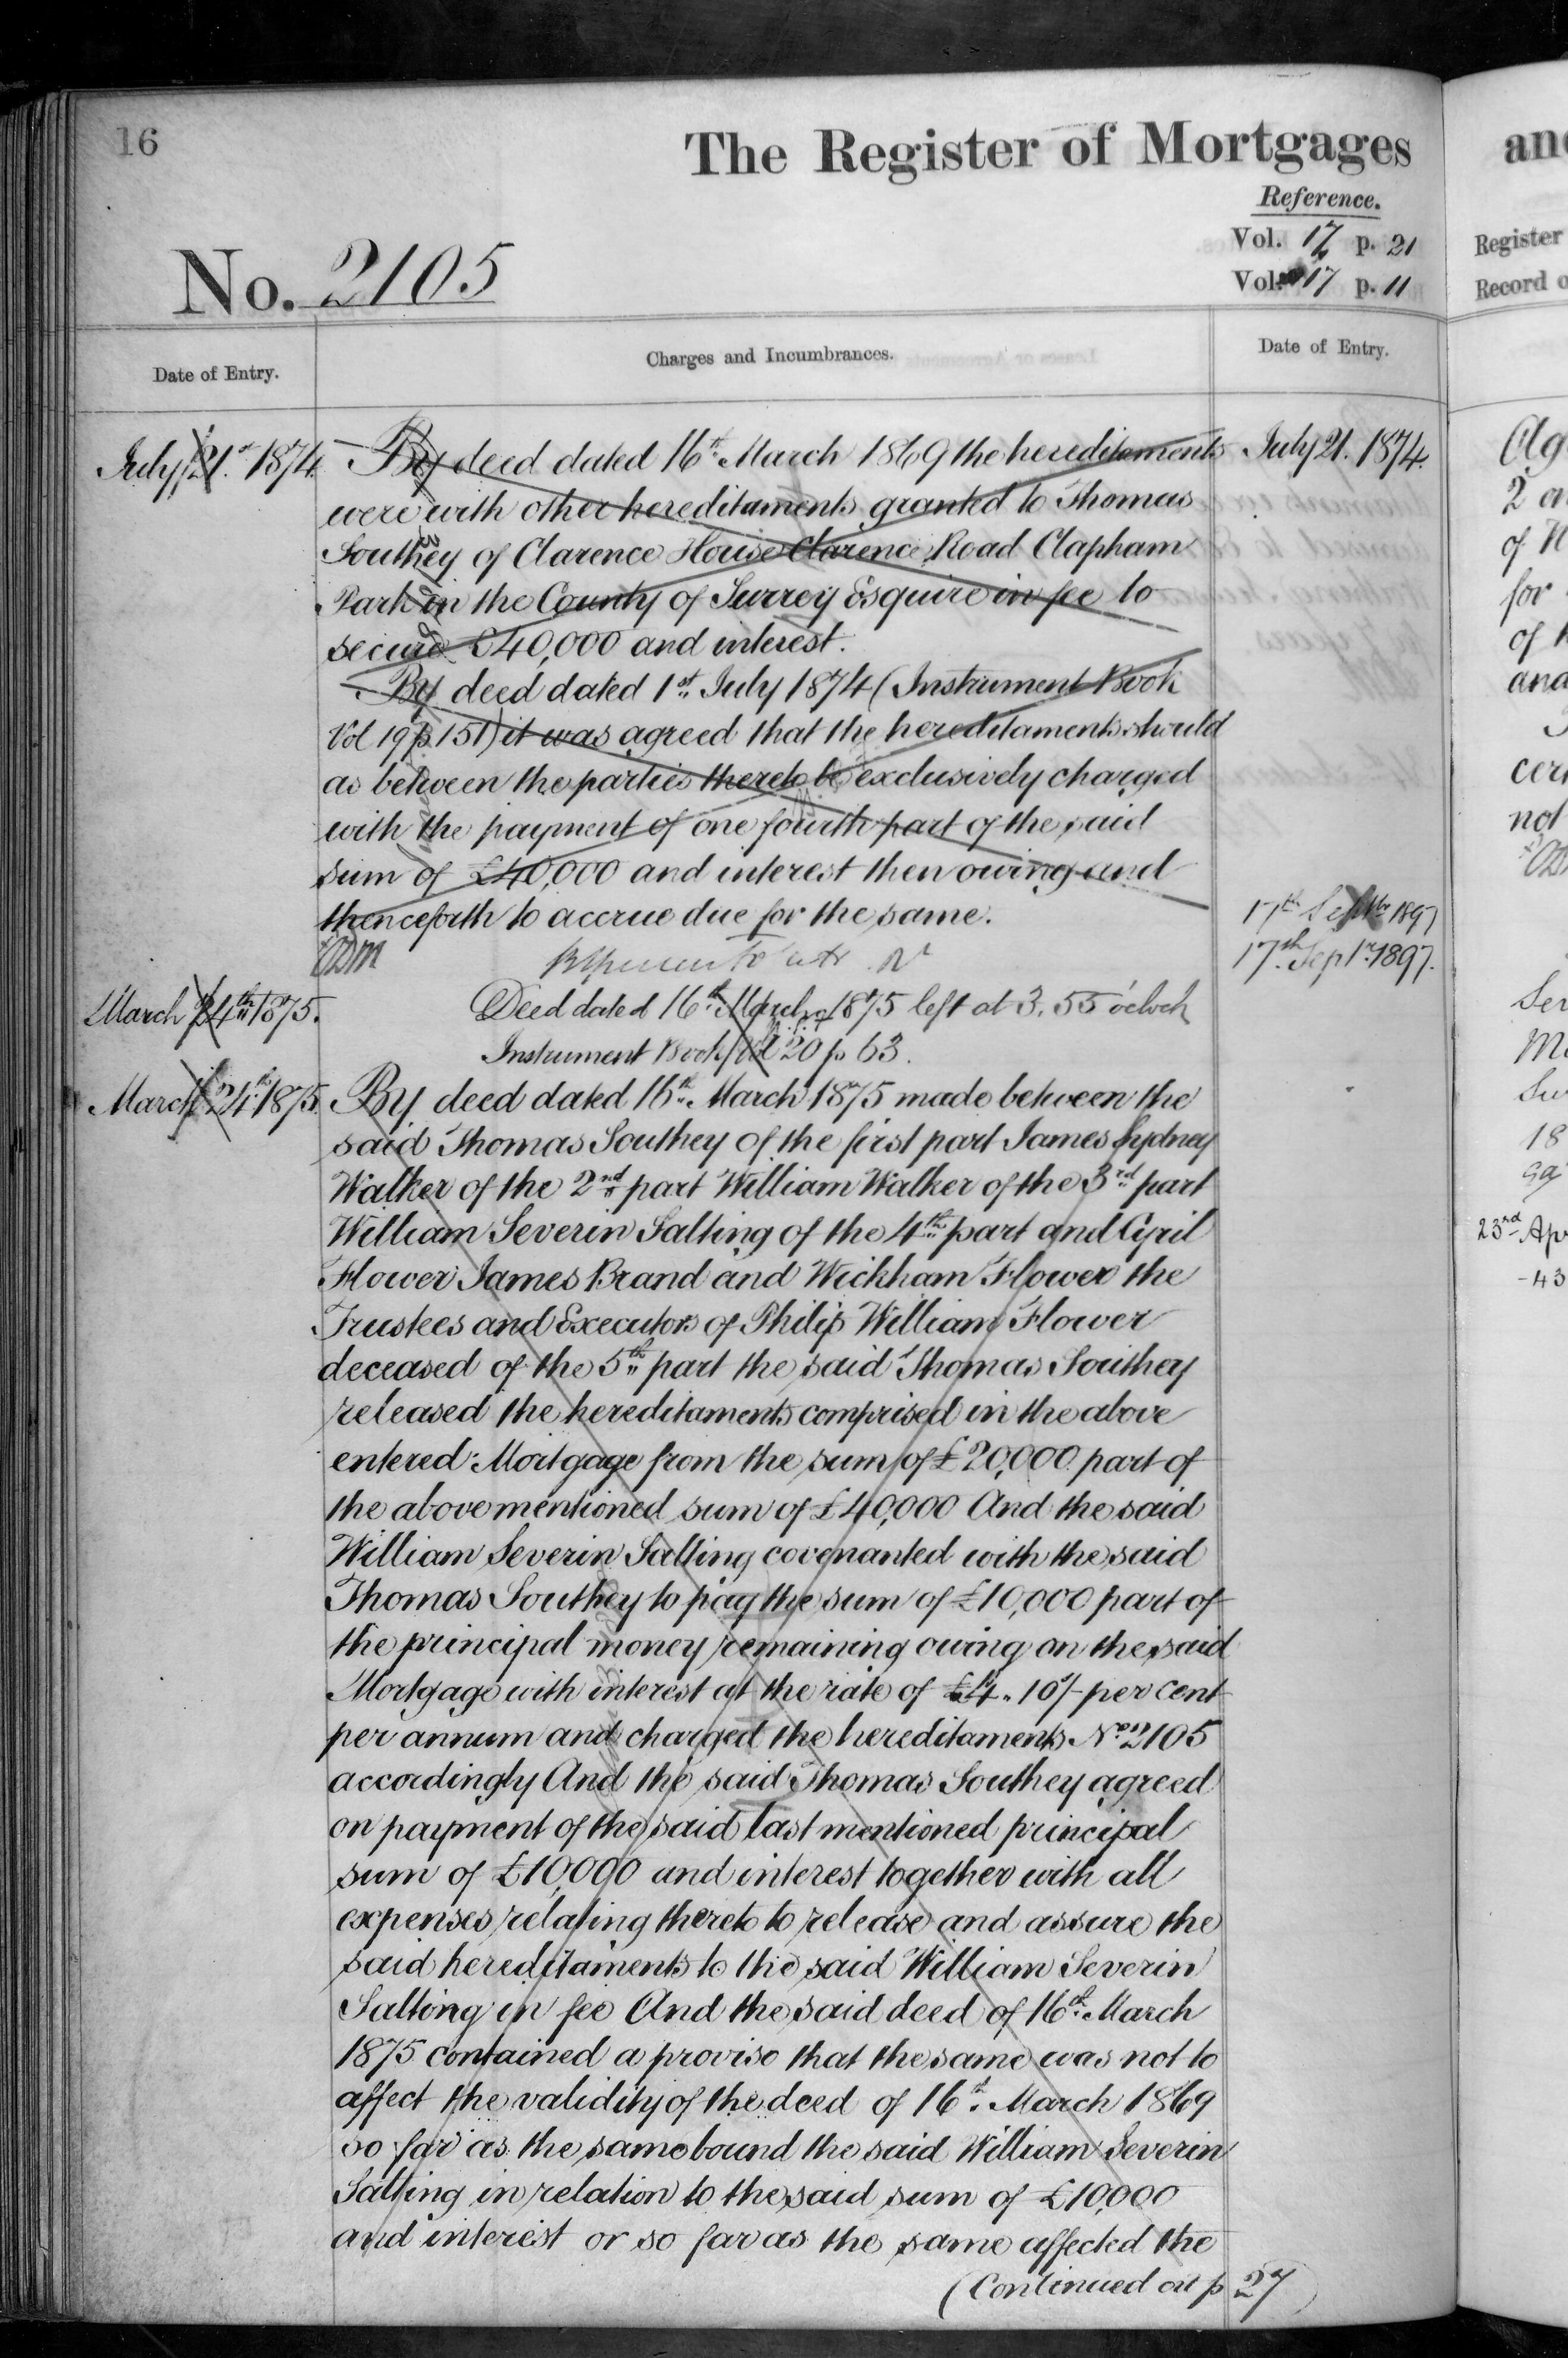 16
The Register of Mortgages
Reference.
Vol. 17 p. 21
Vol. 17 p. 11
No. 2105
Date of Entry.
Charges and Incumbrances.
Date of Entry.
July 21st 1874.
By deed dated 16th March 1869 the hereditaments
were with other hereditaments granted to Thomas
Southey of Clarence House Clarence Road Clapham
Park in the County of Surrey Esquire in fee to
secure £40,000 and interest.
By deed dated 1st July 1874 (Instrument Book
Vol 19 p. 151) it was agreed that the hereditaments should
as between the parties thereto be exclusively charged
with the payment of one fourth part of the said
sum of £40,000 and interest then owing and
thenceforth to accrue due for the same.
March 24th 1875.
Deed dated 16th March 1875 left at 3.55 o'clock
Instrument Book Vol 20 p 63.
March 24th 1875.
By deed dated 16th March 1875 made between the
said Thomas Southey of the first part James Sydney
Walker of the 2nd part William Walker of the 3rd part
William Severin Salting of the 4th part and Cyril
Flower James Brand and Wickham Flower the
Trustees and Executors of Philip William Flower
deceased of the 5th part the said Thomas Southey
released the hereditaments comprised in the above
entered Mortgage from the sum of £20,000 part of
the above mentioned sum of £40,000 And the said
William Severin Salting covenanted with the said
Thomas Southey to pay the sum of £10,000 part of
the principal money remaining owing on the said
Mortgage with interest at the rate of £4. 10/- per cent
per annum and charged the hereditaments No 2105
accordingly And the said Thomas Southey agreed
on payment of the said last mentioned principal
sum of £10,000 and interest together with all
expenses relating thereto to release and assure the
said hereditaments to the said William Severin
Salting in fee And the said deed of 16th March
1875 contained a proviso that the same was not to
affect the validity of the deed of 16th March 1869
so far as the same bound the said William Severin
Salting in relation to the said sum of £10,000
and interest or so far as the same affected the
(Continued on p 27)
July 21. 1874.
17th Septbr 1897
17th Septr. 1897.
and
Register
Record
2
of
for
of
and
not
18
23rd
43